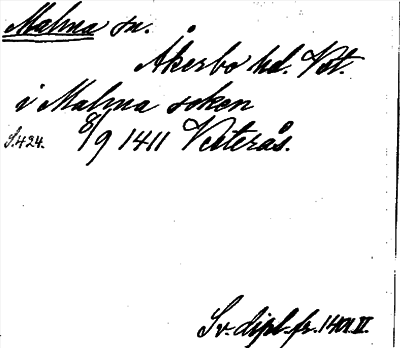 Malma sn.
Åkerbo hd. Vst.
i Malma soken
S.424. 8/9 1411 Vesterås.
Sv. dipl. fr. 1401 II.